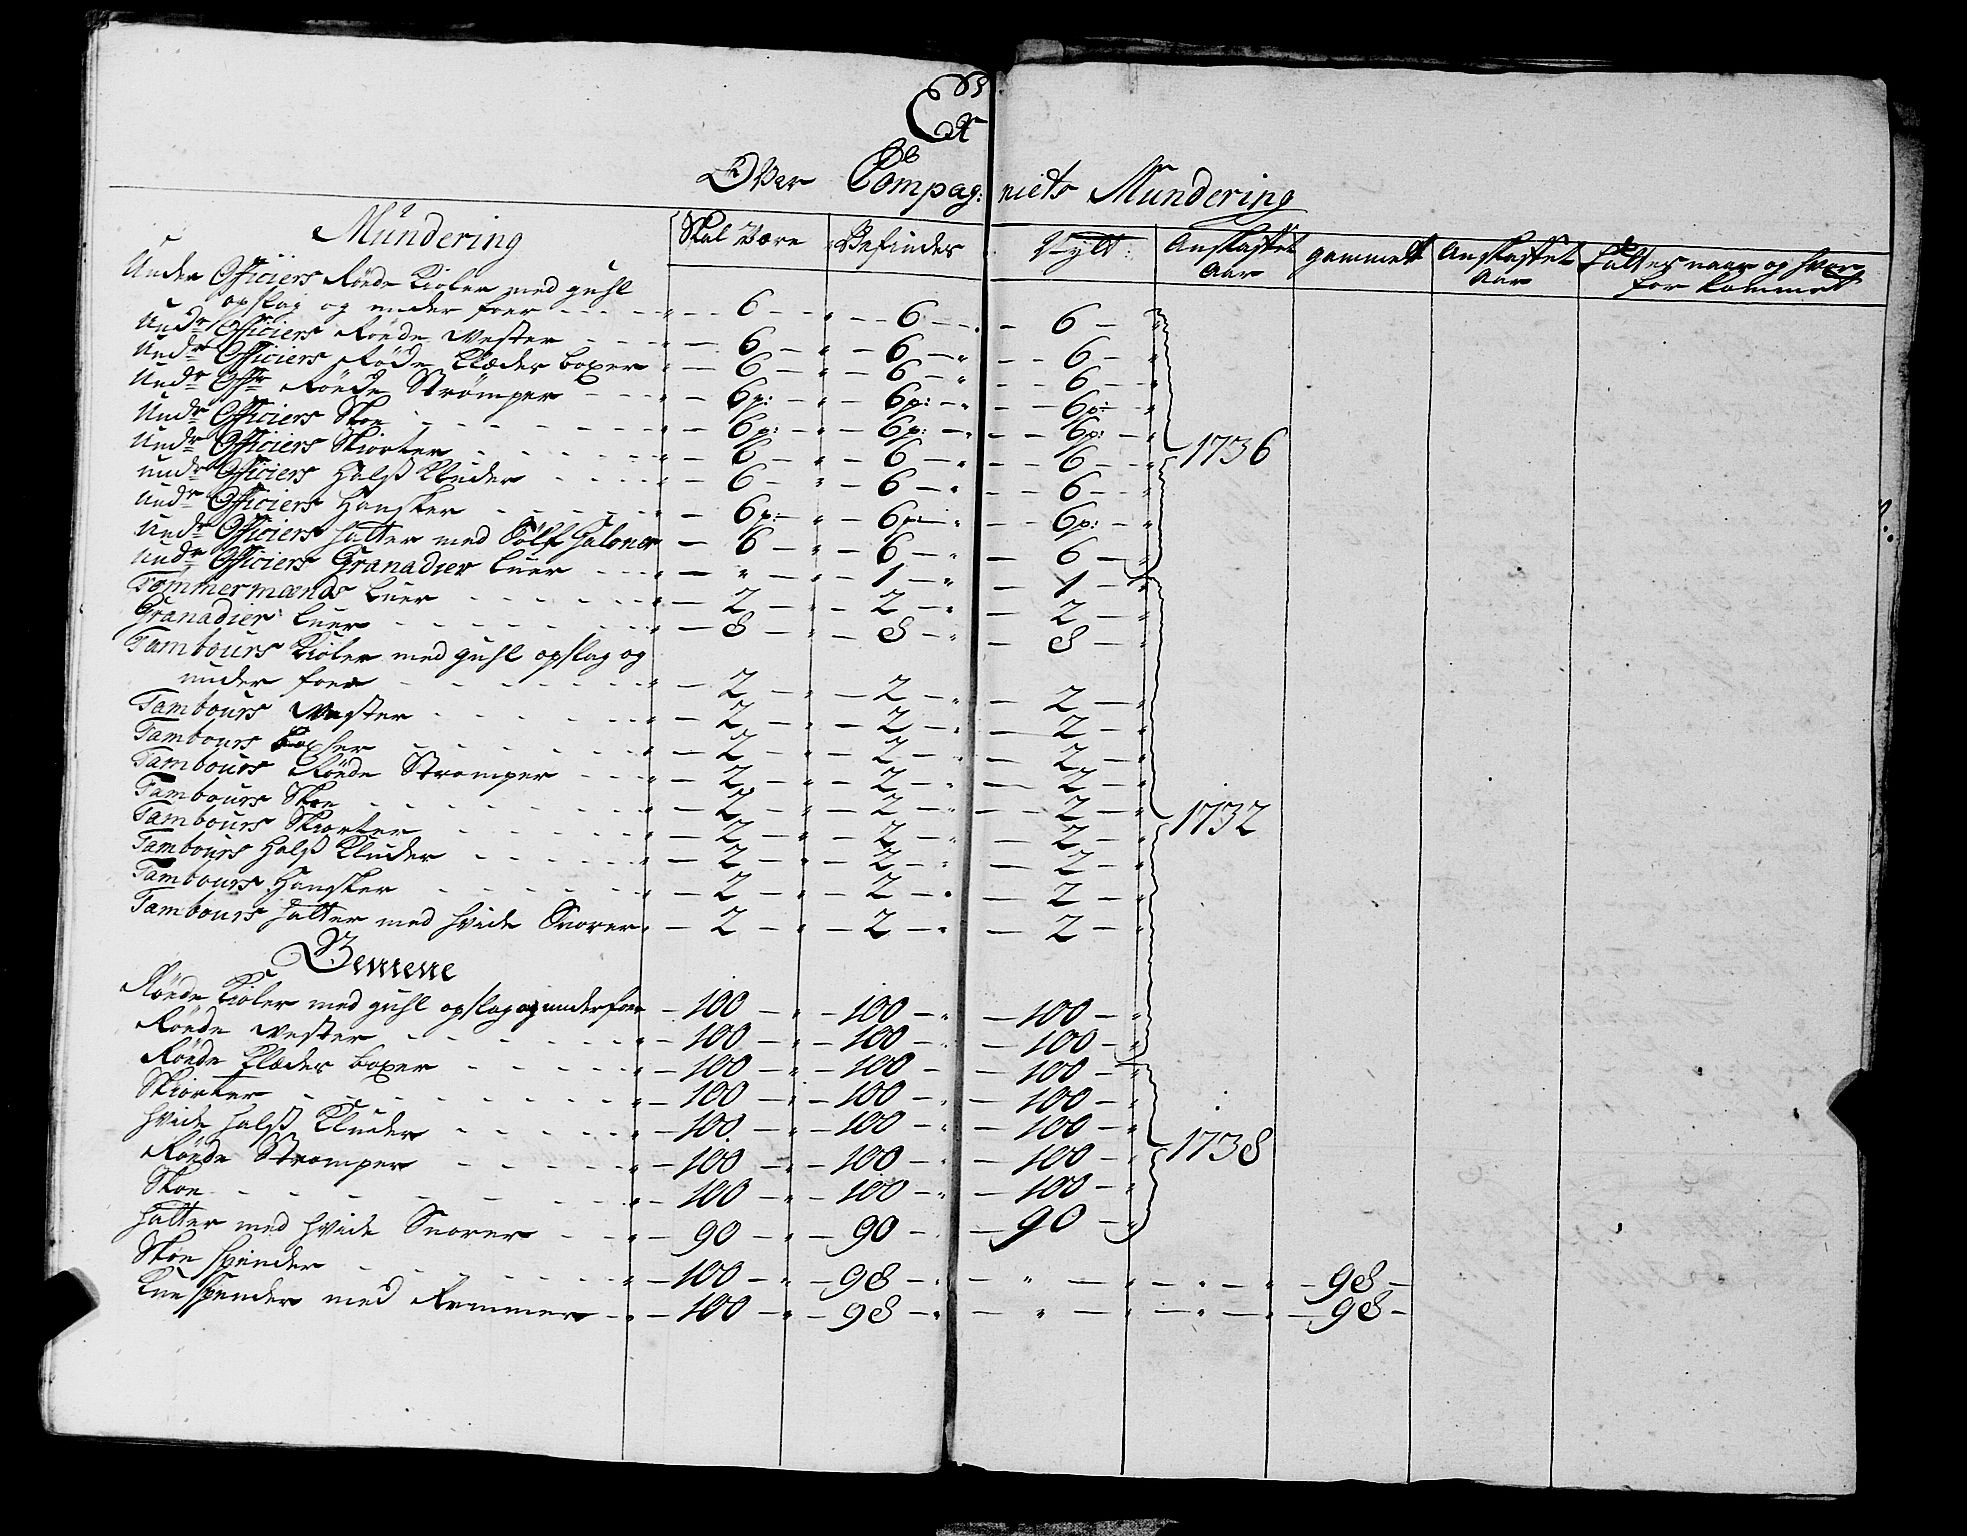 Ex
Over Compag: niets Mundering
Mundering Skal Være Befindes Nytt: Anskaffet Aar gammelt Anskaffet Aar fattes naar og hvor for kommet
Under Officiers Røede Kioler med guhl
opslag og under foer 6 6 6
Undr Officiers Røede Vester 6 6 6
Undr Officiers Røede Klæder boxer 6 6 6
Undr Offr Røede Strømper 6p: 6p: 6p:
Undr Officiers Skoe 6p: 6p: 6p:
Undr Officiers Skiorter 6 6 6 1736
undr Officiers Halß Kluder 6 6 6
Undr Officiers Hansker 6p: 6p: 6p:
Undr Officiers hatter med Sølf Galoner 6 6 6
undr Officiers Granadier Luer " 1 1
Tømmermænds Luer 2 2 2
Granadier Luer 8 8 8
Tambours Kioler med guhl opslag og
under foer 2 2 2
Tambours Vester 2 2 2
Tambours boxser 2 2 2
Tambours Røede Stromper 2 2 2
Tambours Skoe 2 2 2
Tambours Skiorter 2 2 2 1732
Tambours Halß Kluder 2 2 2
Tambours Hansker 2 2 2
Tambours hatter med hvide Snorer 2 2 2
Gemene
Røede Kioler med guhl opslag og underfoer 100 100 100
Røede Vester 100 100 100
Røede Klæder boxer 100 100 100
Skiorter 100 100 100
hvide halß Kluder 100 100 100
Røede Stromper 100 100 100 1738
Skoe 100 100 100
hatter med hvide Snorer 90 90 90
Skoe spender 100 98 " " 98
Knespender med Remmer 100 98 " " 98